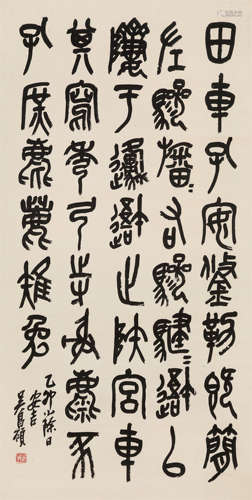 田車孔安鋚勒既簡
左驂旛右驂騝䢒以
隮于邍䢒止陜宮車
其寫秀弓寺射麋豕
孔庶麀鹿雉兔
乙卯小除日
安吉
吳昌碩